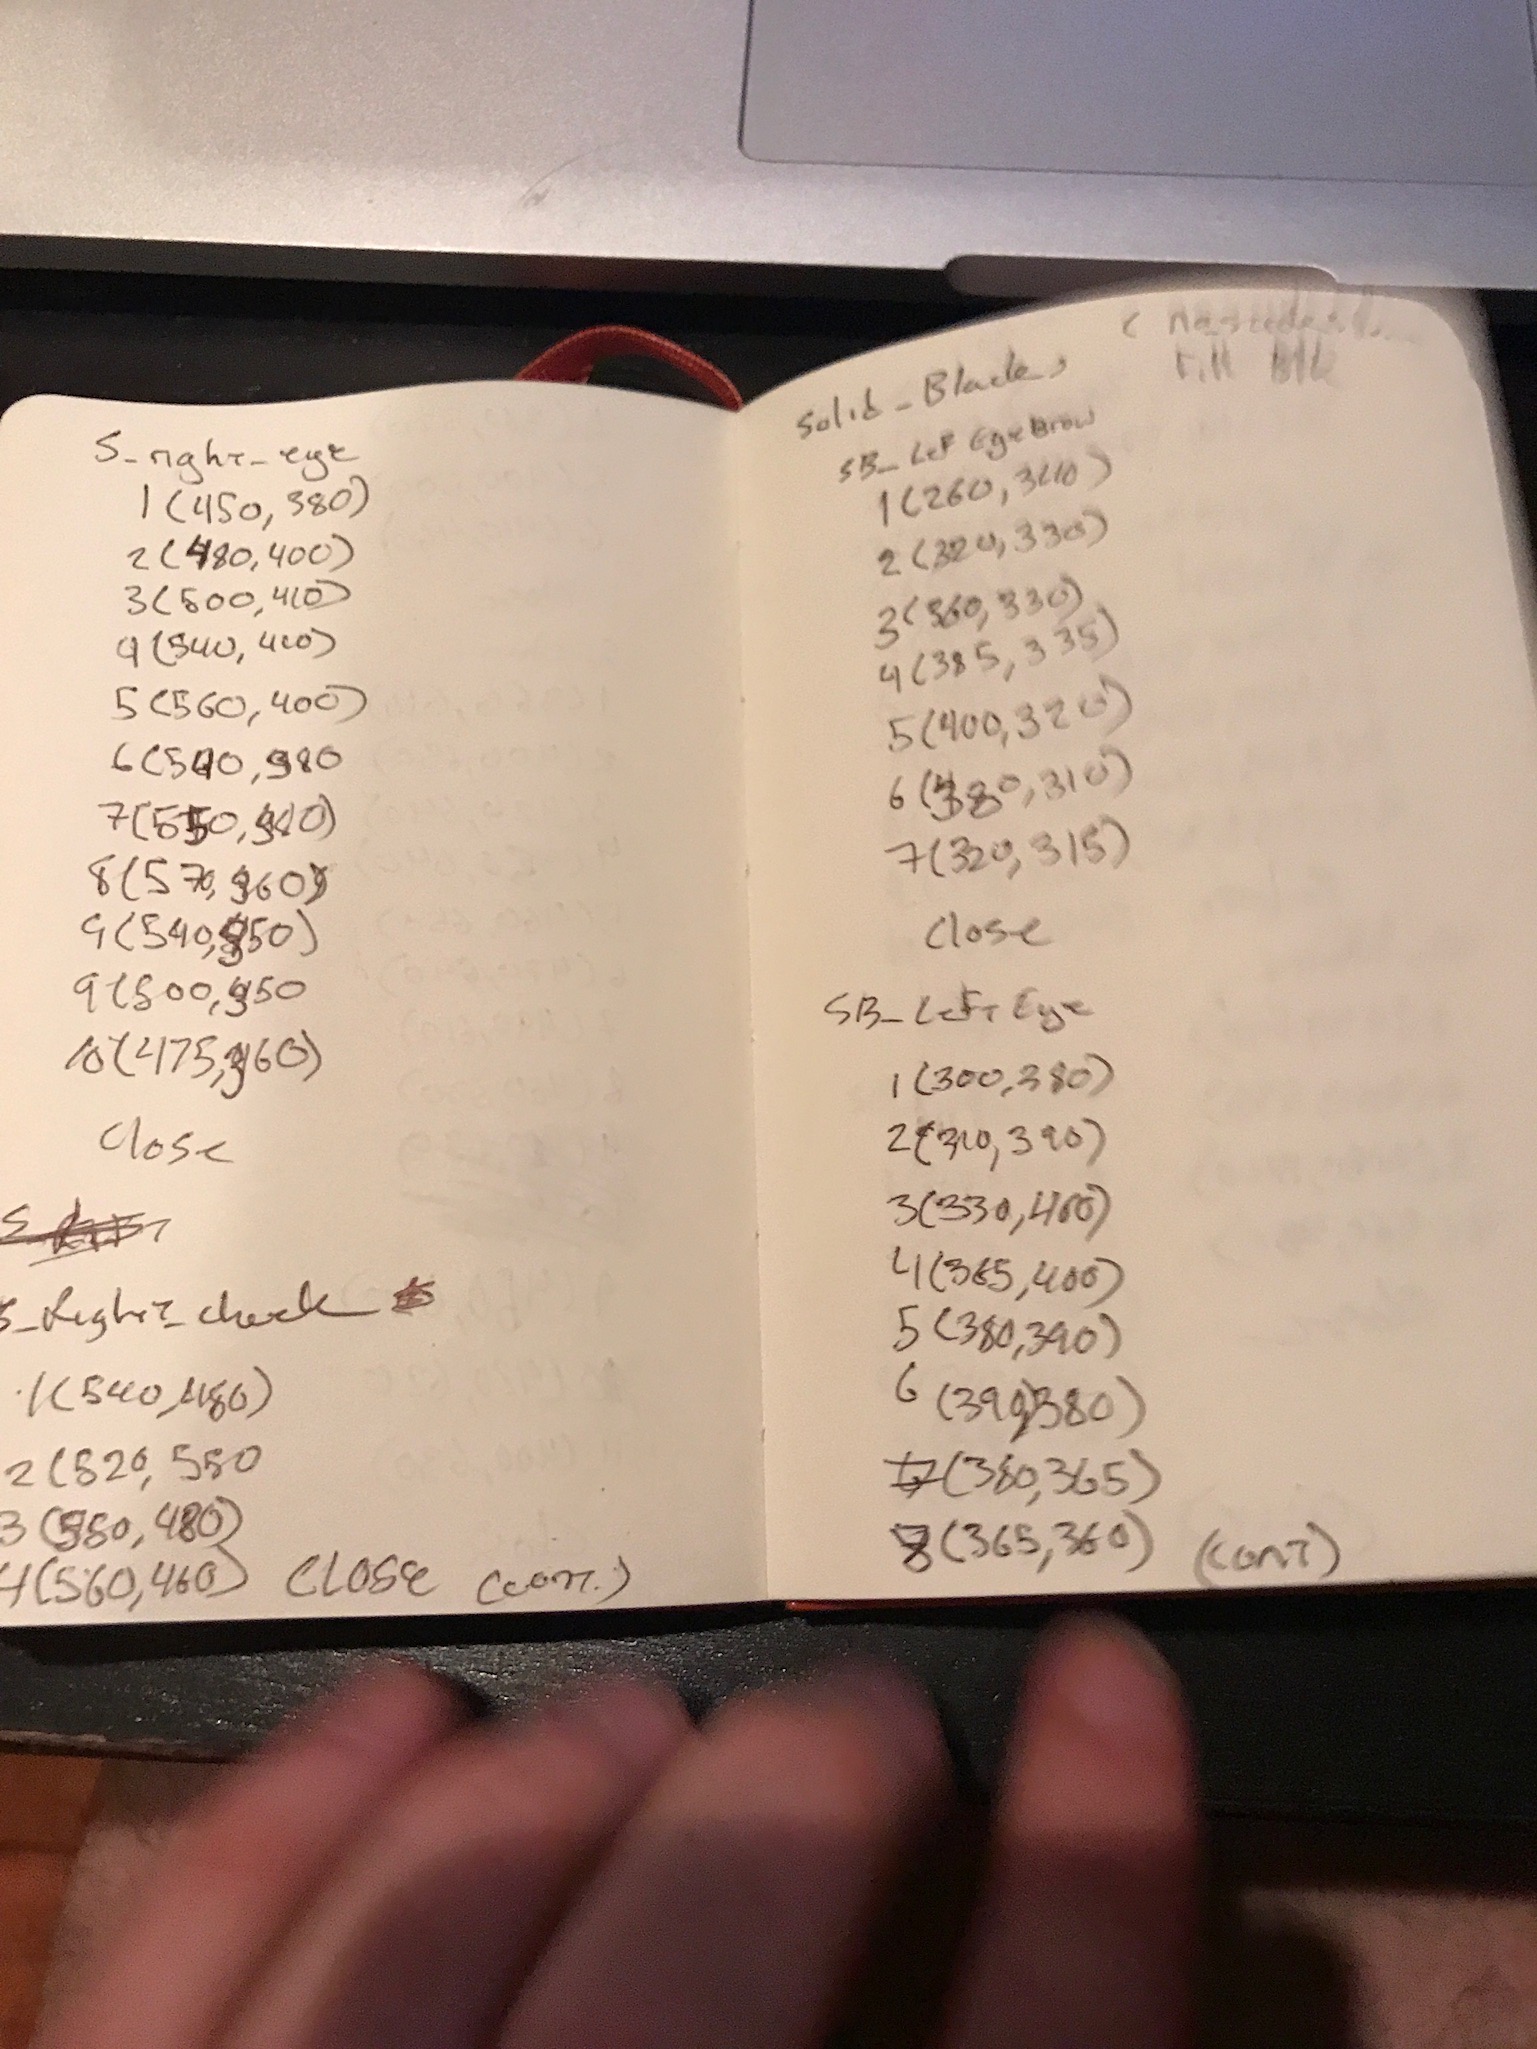 S_right_eye
1(450,380)
2(480,400)
3(500,410)
4(540,410)
5(560,400)
6(540,380
7(550,
8(570,360)
9(540,350)
9(500,350
10(475,360)
Close
S_Right_cheek
1(540,480)
2(520,550
3(550,480)
4(560,460) CLOSE (cont.)
Solid_Blacks
Fill Blk
SB_Left EyeBrow
1(260,340)
2(320,330)
3(360,330)
4(385,335)
5(400,320)
6(380,310)
7(320,315)
Close
SB_Left Eye
1(300,380)
2(310,390)
3(330,400)
4(365,400)
5(380,390)
6(390,380)
7(380,365)
8(365,360) (cont)